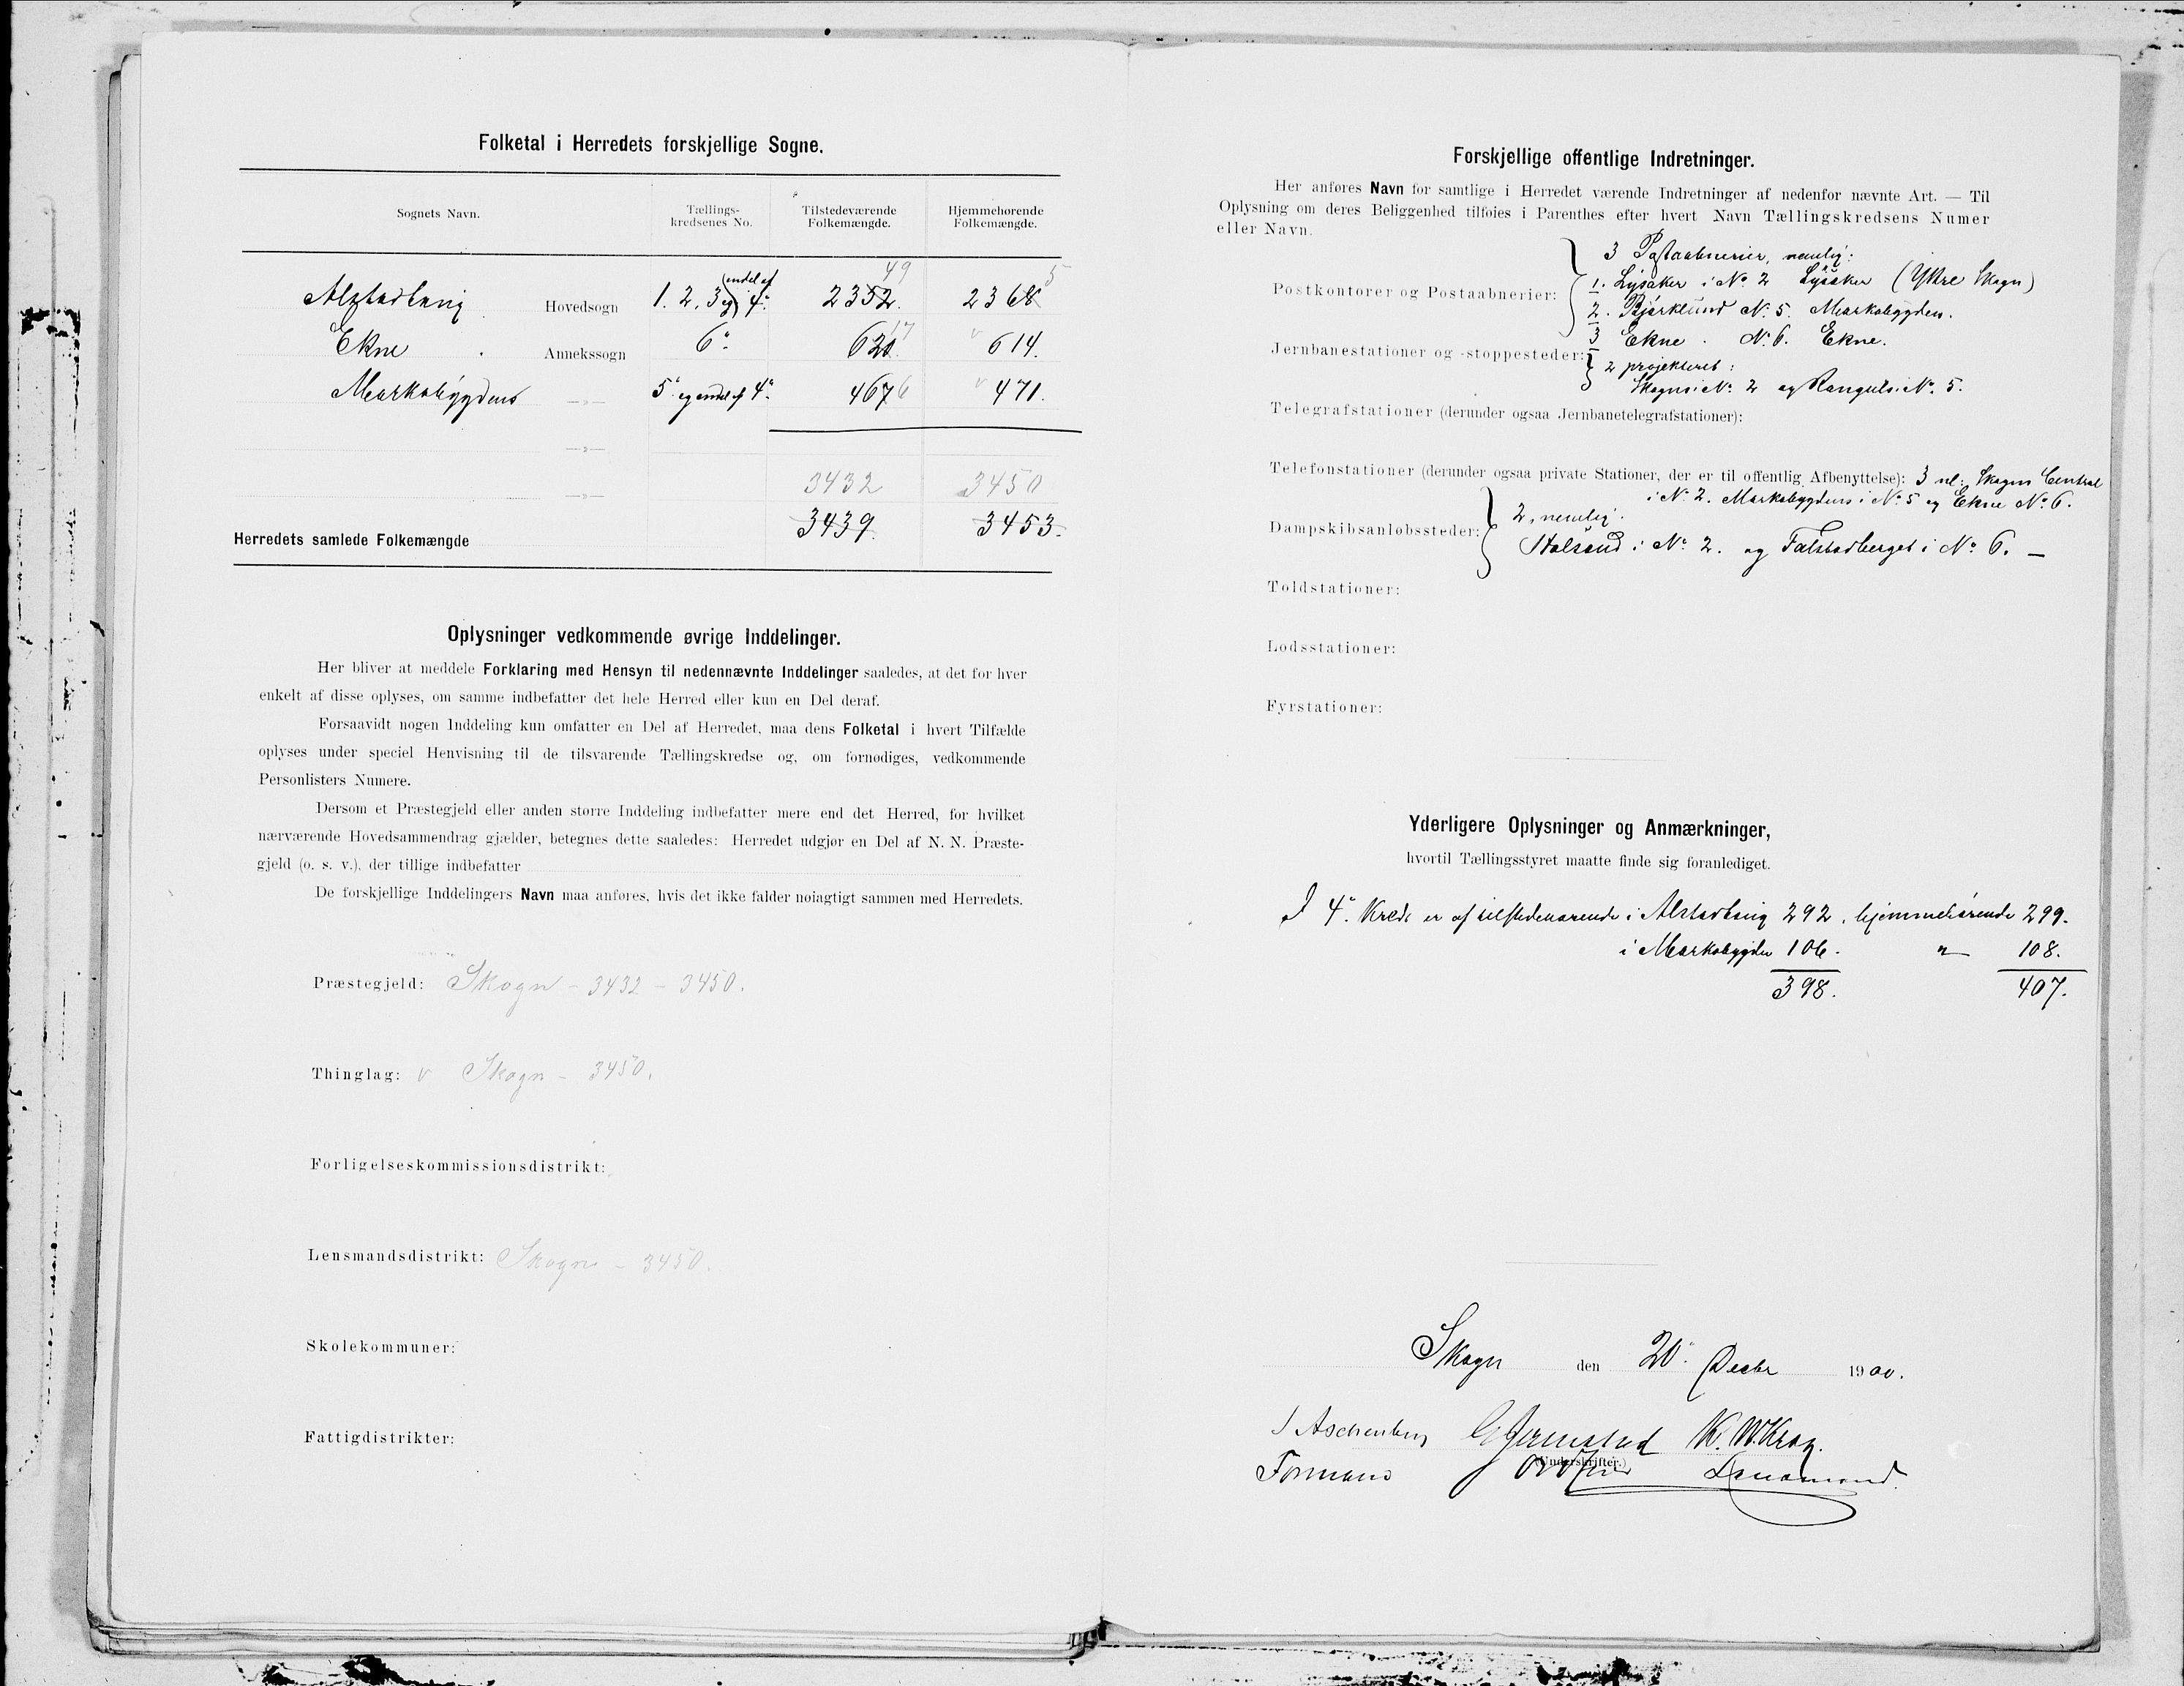 Folketal i Herredets forskjellige Sogne.
Sognets Navn. Tællings-kredsenes No. Tilstedeværende Folkemængde. Hjemmehørende Folkemængde.
49 5
Alstadhaug Hovedsogn 1. 2, 3 og endel af 4de 2352. 2368
17
Ekne Annekssogn 6te 620. 614.
Markabygdens —»— 5te og endel af 4de 467 6 471.
—»—
—»— 3432 3450
Herredets samlede Folkemængde 3439. 3453.
Oplysninger vedkommende øvrige Inddelinger.
Her bliver at meddele Forklaring med Hensyn til nedennævnte Inddelinger saaledes, at det for hver
enkelt af disse oplyses, om samme indbefatter det hele Herred eller kun en Del deraf.
Forsaavidt nogen Inddeling kun omfatter en Del af Herredet, maa dens Folketal i hvert Tilfælde
oplyses under speciel Henvisning til de tilsvarende Tællingskredse og, om fornødiges, vedkommende
Personlisters Numere.
Dersom et Præstegjeld eller anden større Inddeling indbefatter mere end det Herred, for hvilket
nærværende Hovedsammendrag gjælder, betegnes dette saaledes: Herredet udgjør en Del af N. N. Præste-
gjeld (o. s. v.), der tillige indbefatter
De forskjellige Inddelingers Navn maa anføres, hvis det ikke falder nøiagtigt sammen med Herredets.
Præstegjeld: Skogn – 3432 – 3450.
Thinglag: v Skogn – 3450.
Forligelseskommissionsdistrikt:
Lensmandsdistrikt: Skogn – 3450.
Skolekommuner:
Fattigdistrikter:
Forskjellige offentlige Indretninger.
Her anføres Navn for samtlige i Herredet værende Indretninger af nedenfor nævnte Art. — Til
Oplysning om deres Beliggenhed tilføies i Parenthes efter hvert Navn Tællingskredsens Numer
eller Navn.
3 Postaabnerier, nemlig:
Postkontorer og Postaabnerier: 1. Lysaker i No 2 Lysaker (Ytre Skogn)
2. Bjørklund No. 5. Markabygden.
3 Ekne. No. 6. Ekne.
Jernbanestationer og -stoppesteder: 2 projekteret:
Skogns i No. 2 og Ronguls i No. 5.
Telegrafstationer (derunder ogsaa Jernbanetelegrafstationer):
Telefonstationer (derunder ogsaa private Stationer, der er til offentlig Afbenyttelse): 3 nl: Skogns Central
i No. 2. Markabygdens i No. 5 og Ekne No. 6.
Dampskibsanløbssteder: 2, nemlig:
Holsand i No. 2. og Falstadberget i No. 6. —
Toldstationer:
Lodsstationer:
Fyrstationer:
Yderligere Oplysninger og Anmærkninger,
hvortil Tællingsstyret maatte finde sig foranlediget.
I 4de Kreds er af tilstedeværende i Alstadhaug 292. hjemmehørende 299.
i Markabygden 106. „ 108.
398. 407.
Skogn den 20. Decbr 1900.
Aschenberg K. W. Krog.
Formand (Underskrifter.) Lensmand.